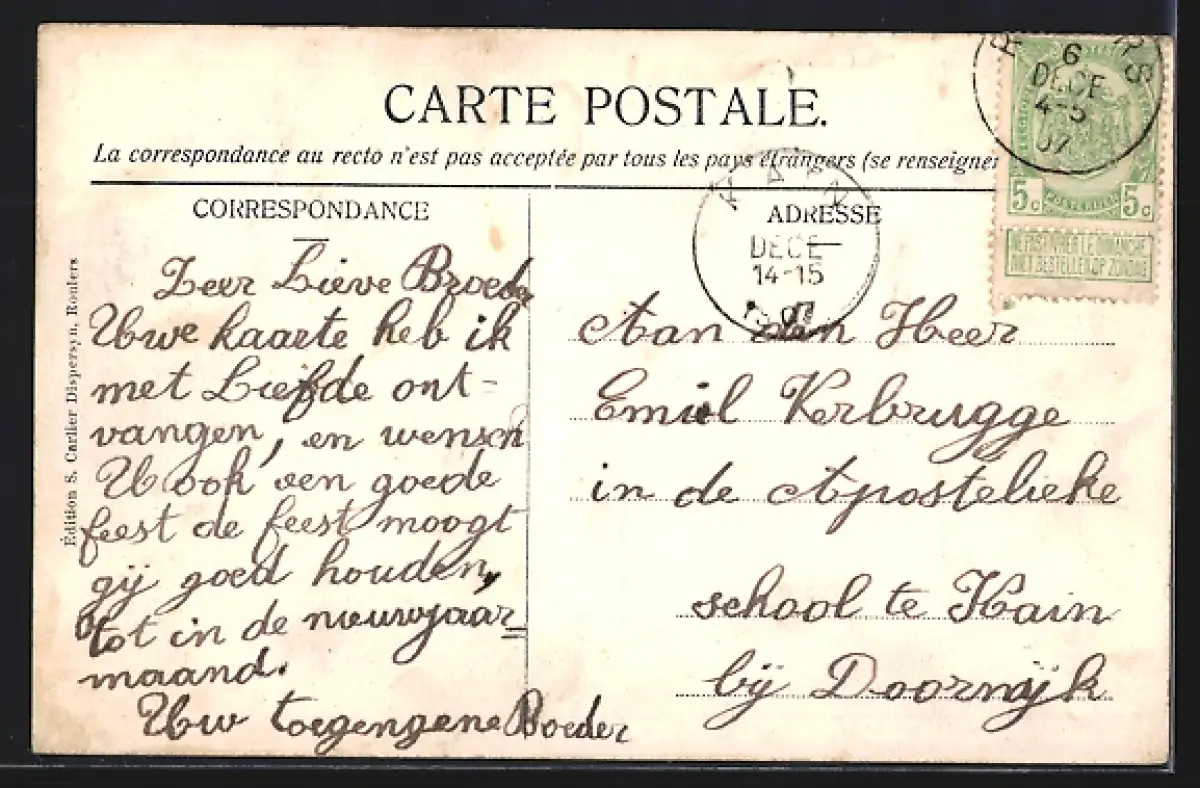 CARTE POSTALE.
La correspondance au recto n'est pas acceptée par tous les pays étrangers (se renseigner
CORRESPONDANCE
Zeer Lieve Broeder
Uwe kaarte heb ik
met Liefde ont-
vangen, en wensch
U ook een goede
feest de feest moogt
gij goed houden,
tot in de nieuwjaar=
maand.
Uw toegengene Boeder
Édition S. Carlier Dispersyn, Roulers
ADRESSE
Aan den Heer
Emiel Kerbrugge
in de Apostelieke
school te Kain
bij Doornijk
6
DECE
4-5
07
KAIN
DECE
14-15
1907
POSTERIJEN
5c 5c
NE PAS LIVRER LE DIMANCHE
NIET BESTELLEN OP ZONDAG